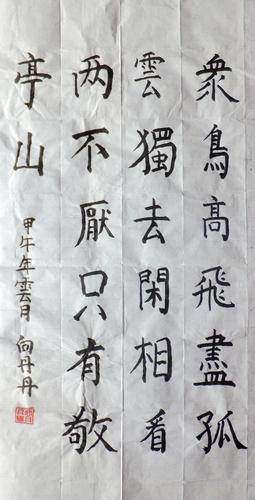 衆鳥高飛盡孤
雲獨去閑相看
两不厭只有敬
亭山
甲午年雲月 向丹丹